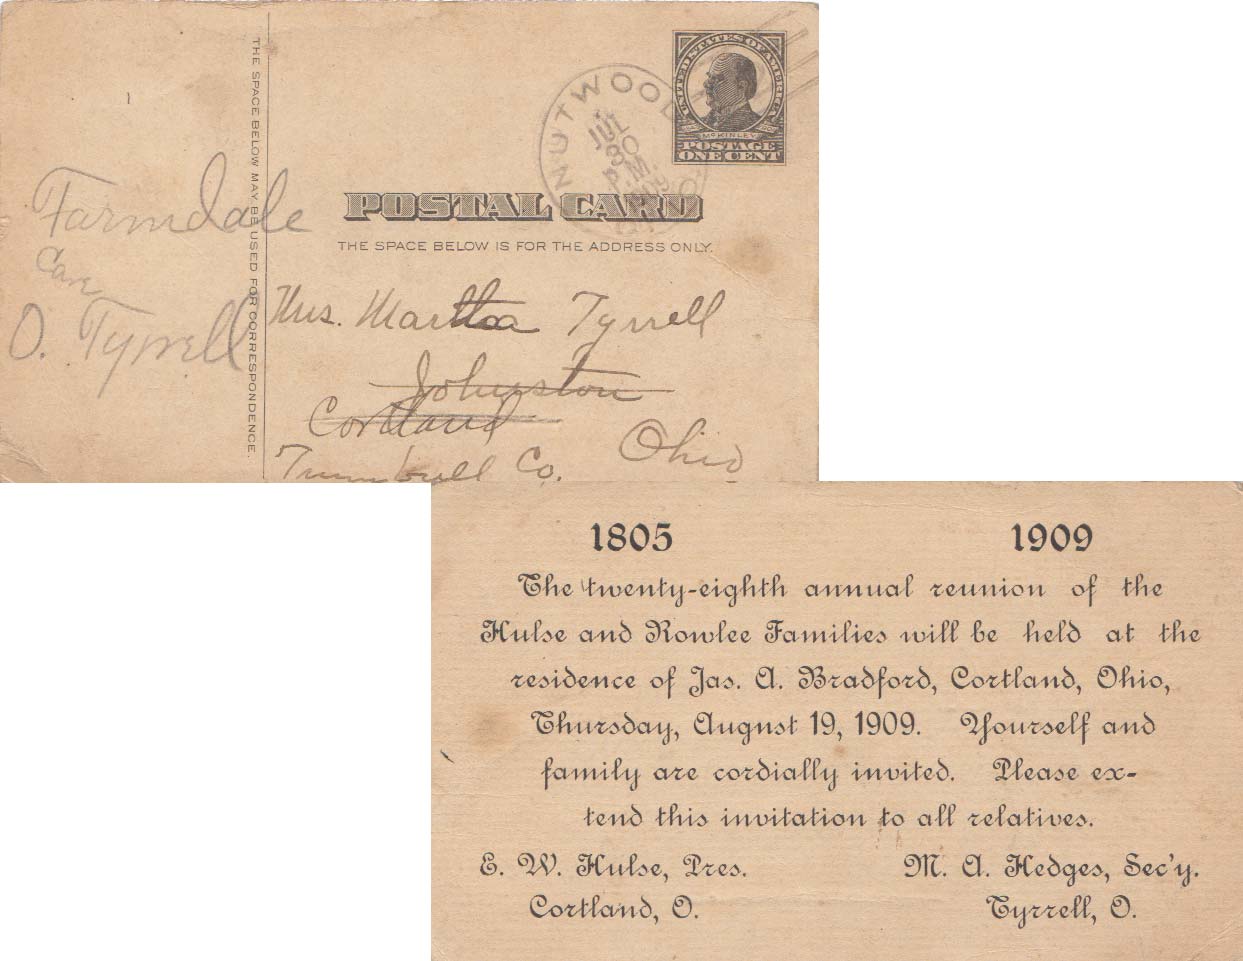 THE SPACE BELOW MAY BE USED FOR CORRESPONDENCE.
UNITED STATES OF AMERICA
McKINLEY
POSTAGE
ONE CENT
NUTWOOD
JUL
POSTAL CARD
THE SPACE BELOW IS FOR THE ADDRESS ONLY.
Farmdale
Care
O. Tyrrell
Mrs. Martha Tyrrell
Johnston
Cortland
Ohio
Trumbull Co.
1805 1909
The twenty-eighth annual reunion of the
Hulse and Rowlee Families will be held at the
residence of Jas. A. Bradford, Cortland, Ohio,
Thursday, August 19, 1909. Yourself and
family are cordially invited. Please ex-
tend this invitation to all relatives.
E. W. Hulse, Pres. M. A. Hedges, Sec'y.
Cortland, O. Tyrrell, O.